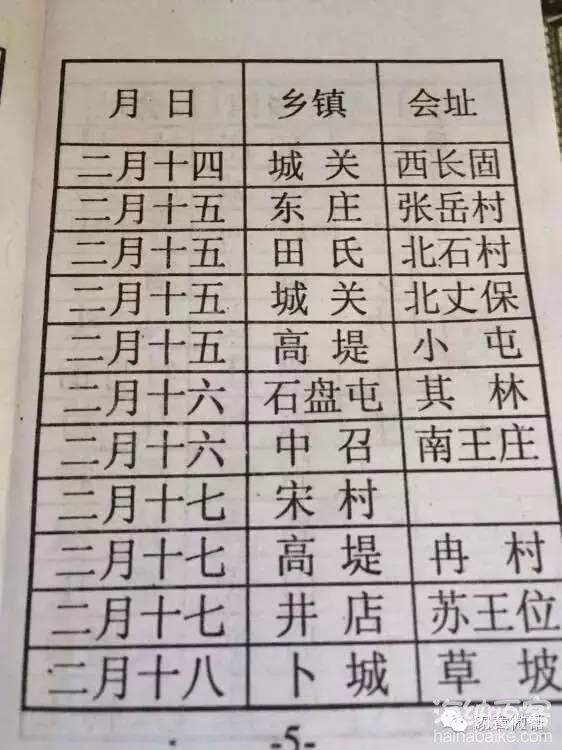 月 日 乡镇 会址
二月十四 城 关 西长固
二月十五 东 庄 张岳村
二月十五 田 氏 北石村
二月十五 城 关 北丈保
二月十五 高 堤 小 屯
二月十六 石盘屯 其 林
二月十六 中 召 南王庄
二月十七 宋 村
二月十七 高 堤 冉 村
二月十七 井 店 苏王位
二月十八 卜 城 草 坡
-5-
hainabaike.com